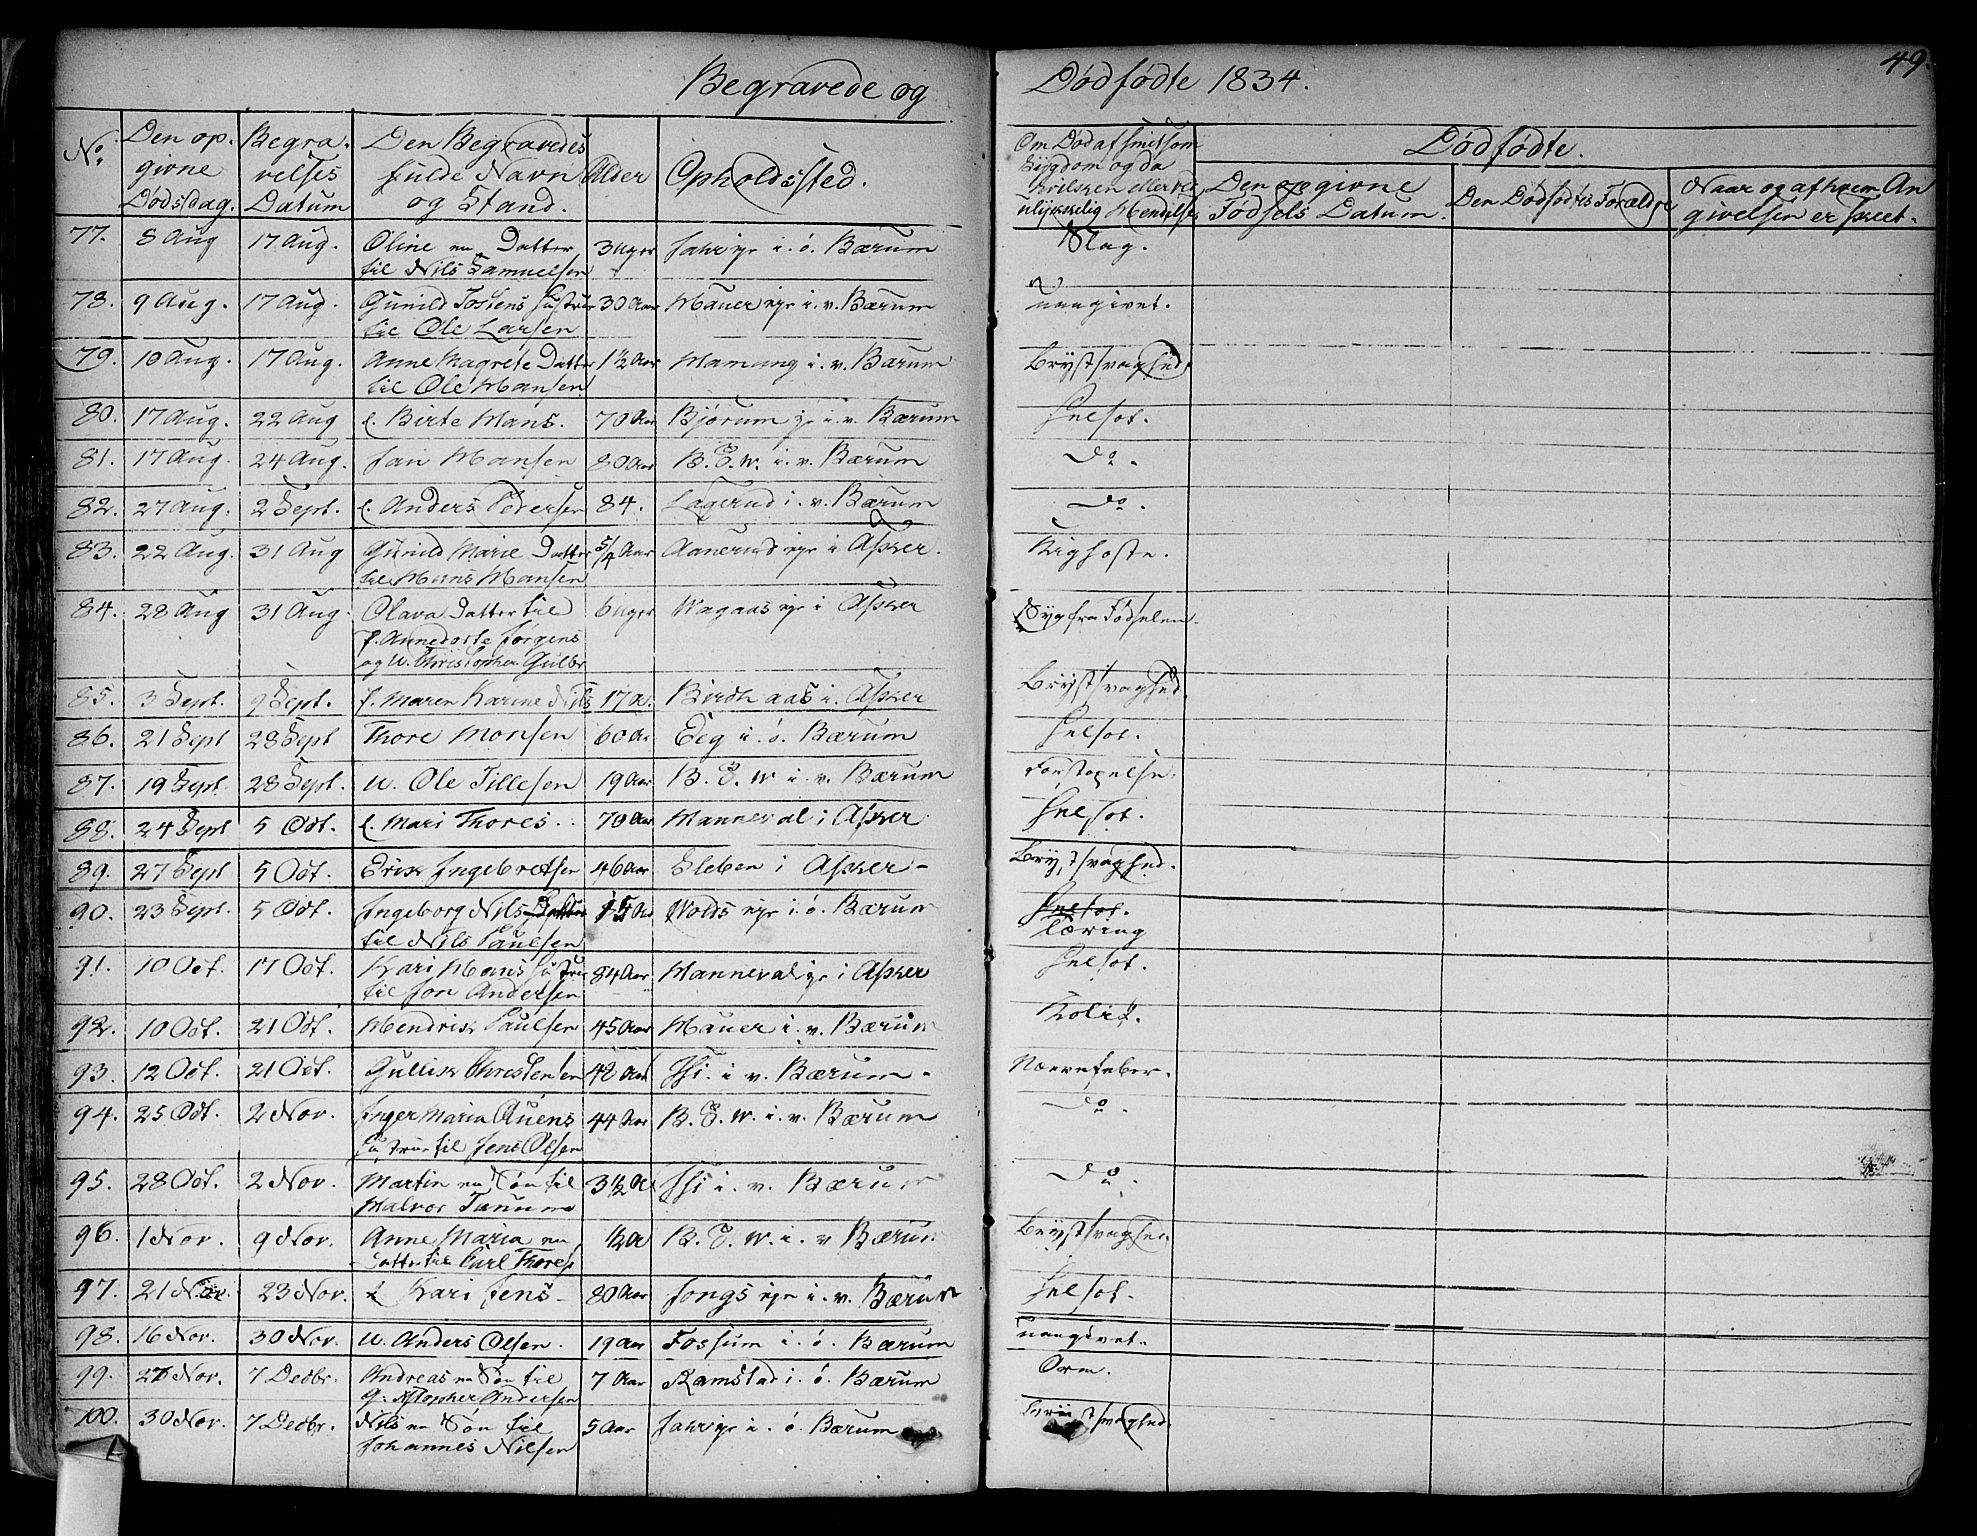 49.
Begravede og Dødfødte 1834.
No. Den opgivne Dødsdag. Begravelses Datum Den Begravedes fulde Navn og Stand. Alder Opholdssted. Om Død af smitsom Sygdom og da hvilken eller ved ulykkelig Hendelse Dødfødte. Den opgivne Fødsels Datum. Den Dødfødtes Forældre Naar og af hvem Angivelsen er skeet.
77. 8 Aug 17 Aug. Oline en Datter 3 Uger i. ø. Bærum Slag.
til Nils Samuelsen
78. 9 Aug. 17 Aug. Gunild Tostens Hustrue 30 Aar Hauer eye i. v. Bærum uangivet.
til Ole Larsen
79. 10 Aug. 17 Aug. Anne Magrete Datter 1½ Aar Hamang i. v. Bærum Brystsvaghed.
til Ole Hansen
80. 17 Aug. 22 Aug L. Birte Hans. 70 Aar Bjørum ye i. v. Bærum Helsot.
81. 17 Aug. 24 Aug. Jan Hansen 80 Aar B. E. W. i. v. Bærum Do.
82. 27 Aug. 2 Sept. L. Anders Pedersen 84. Lagerud i. v. Bærum Do.
83. 22 Aug. 31 Aug Gunild Marie Datter 5/4 Aar Aanerud eye i Asker. Kighoste.
til Hans Hansen
84. 28 Aug 31 Aug. Olava Datter til 6 Uger Wagaas eye i Asker Syg fra Fødselen.
f. Annedorte Jørgens
og U. Christopher Gulbr
85. 3 Sept. 9 Sept. f. Maren Karine Nils 17 A. Birchaas i. Asker Brystsvaghed.
86. 21 Sept 28 Sept Thore Monsen 60 Aar Eeg i. ø. Bærum Helsot.
87. 19 Sept. 28 Sept. U. Ole Tillesen 19 Aar B. E. W i. v. Bærum Forstopelse.
88. 24 Sept 5 Oct. L. Mari Thores. 70 Aar Manneval i Asker Helsot.
89. 27 Sept 5 Oct. Erik Ingebretsen 46 Aar Sleben i Asker Brystsvaghed.
90. 23 Sept. 5 Oct. Ingeborg Nils Datter 15 Aar Wolds eye i. ø. Bærum Helsot.
til Nils Paulsen Tæring
91. 10 Oct. 17 Oct. Kari Hans Hustrue 84 Aar Manneval ye i Asker Helsot.
til Jon Andersen
92. 10 Oct. 21 Oct. Hendrik Paulsen 45 Aar Hauer i. v. Bærum Kolik.
93. 12 Oct. 21 Oct. Gullik Christensen 42 Aar Thi. i v. Bærum. Nervefeber.
94. 25 Oct. 2 Nov. Inger Maria Auens 44 Aar B. E. W. i. v. Bærum Do.
Hustrue til Jens Olsen
95. 28 Oct. 2 Nov. Martin en Søn til 3½ A Thi i. v. Bærum Do.
Halvor Tanum
96. 1 Nov. 9 Nov. Anne Maria en ½ A B. E. W. i. v Bærum Brystsvaghed.
Datter til Carl Thores
97. 21 Nov. 23 Nov. L Kari Jens 80 Aar Jongs eye i. v. Bærum Helsot.
98. 16 Nov. 30 Nov. U. Anders Olsen. 19 Aar Fossum i. ø. Bærum uangivet.
99. 27 Nov. 7 Decbr. Andreas en Søn til 7 Aar Ramstad i. ø. Bærum Orm.
G. Kstopher Andersen
100. 30 Nov. 7 Decbr. Nils en Søn til 5 Aar i. ø. Bærum Brystsvaghed.
Johannes Nilsen